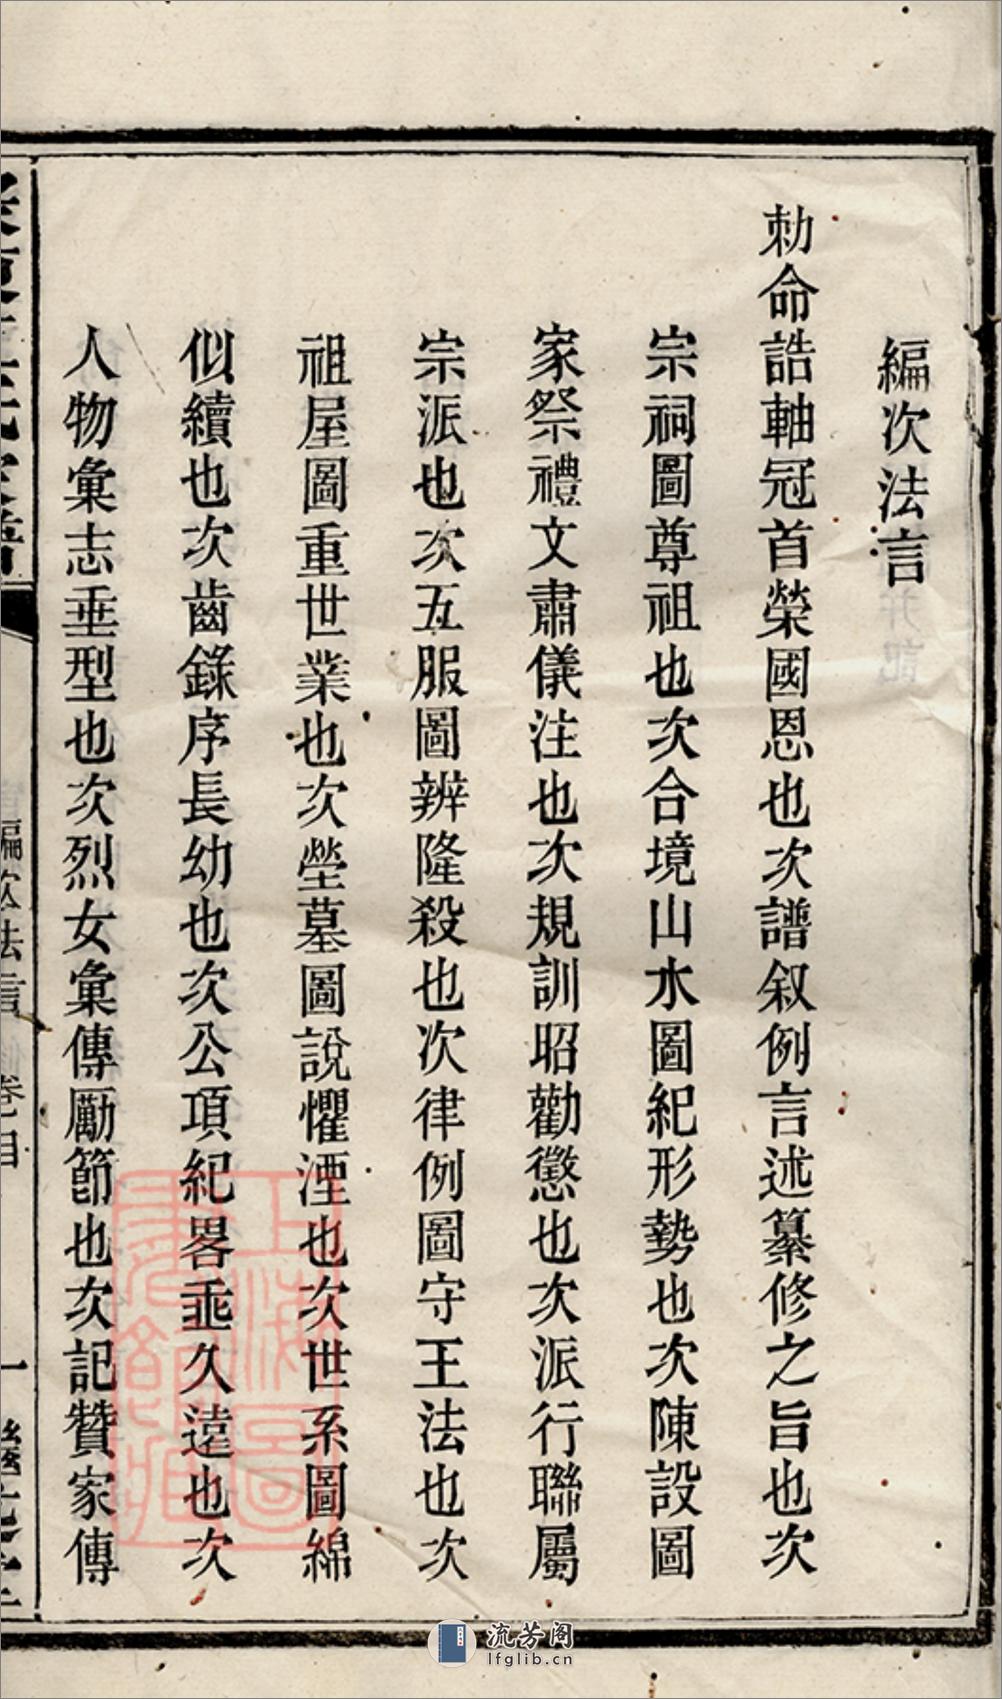 編次法言
勅命誥軸冠首榮國恩也次譜叙例言述纂修之旨也次
宗祠圖尊祖也次合境山水圖紀形勢也次陳設圖
家祭禮文肅儀注也次規訓昭勸懲也次派行聯屬
宗派也次五服圖辨隆殺也次律例圖守王法也次
祖屋圖重世業也次塋墓圖說懼湮也次世系圖綿
似續也次齒錄序長幼也次公項紀畧垂久遠也次
人物彙志垂型也次烈女彙傳勵節也次記贊家傳
編次法言
卷目
一
上海圖書館藏
流芳阁
lfglib.cn